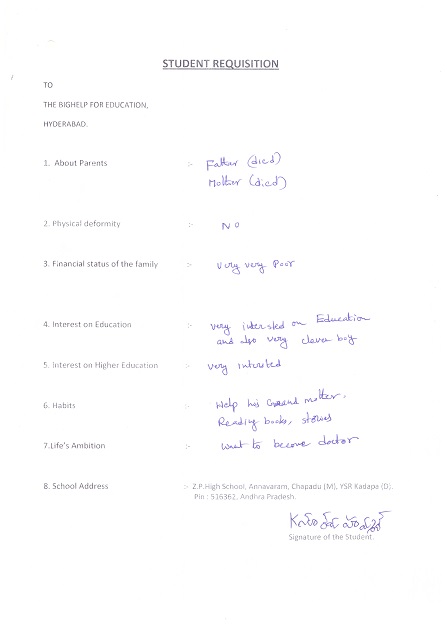 STUDENT REQUISITION
TO
THE BIGHELP FOR EDUCATION,
HYDERABAD.
1. About Parents :- Father (died)
Mother (died)
2. Physical deformity :- NO
3. Financial status of the family :- very very Poor
4. Interest on Education :- very intersted on Education
and also very clever boy
5. Interest on Higher Education :- very intersted
6. Habits :- Help his Grand mother,
Reading books, stories
7.Life's Ambition :- want to become doctor
8. School Address :- Z.P.High School, Annavaram, Chapadu (M), YSR Kadapa (D).
Pin : 516362, Andhra Pradesh.
Signature of the Student.